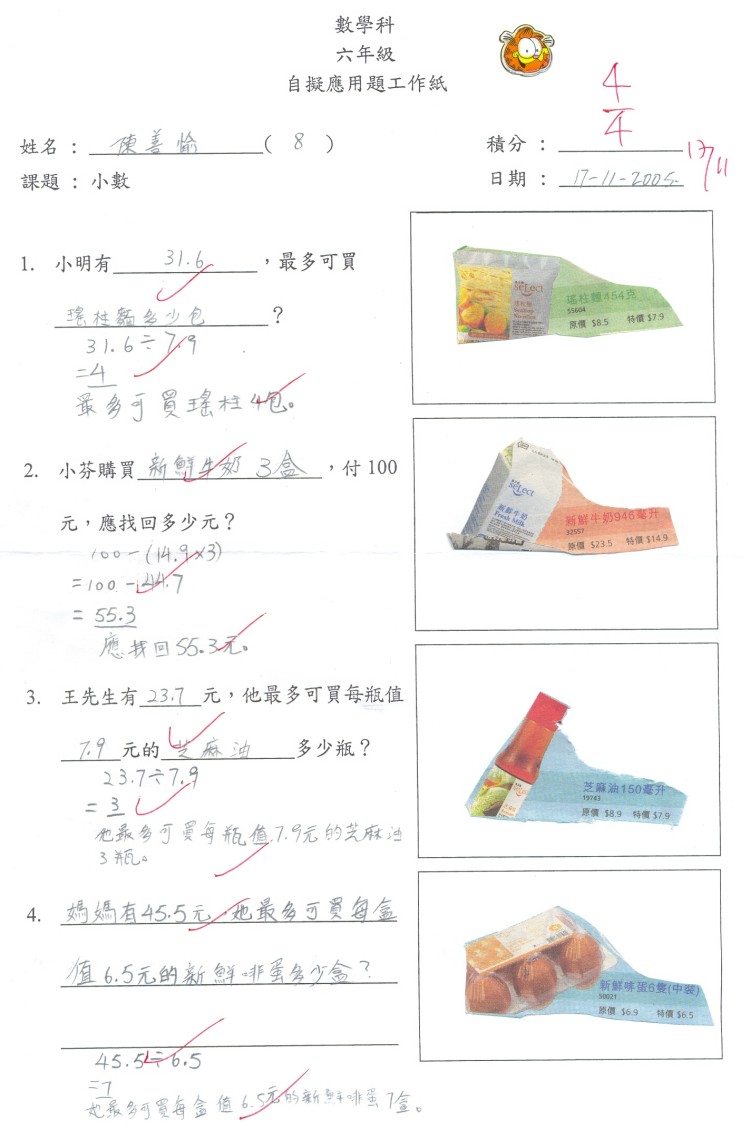 數學科
六年級
自擬應用題工作紙
4
4
姓名 : 陳善愉 ( 8 )
積分 :
17/11
課題 : 小數
日期 : 17-11-2005
1. 小明有 31.6 ，最多可買
瑤柱麵多少包 ?
31.6÷7.9
=4
最多可買瑤柱4包。
select
瑤柱麵454克
55604
原價 $8.5 特價 $7.9
2. 小芬購買 新鮮牛奶 3盒 ，付 100
元，應找回多少元？
100-(14.9×3)
=100-44.7
= 55.3
應找回55.3元。
select
新鮮牛奶
Fresh Milk
新鮮牛奶946毫升
32557
原價 $23.5 特價 $14.9
3. 王先生有 23.7 元，他最多可買每瓶值
7.9 元的 芝麻油 多少瓶？
23.7÷7.9
= 3
他最多可買每瓶值7.9元的芝麻油
3瓶。
芝麻油150毫升
19743
原價 $8.9 特價 $7.9
4. 媽媽有45.5元，她最多可買每盒
值6.5元的新鮮啡蛋多少盒？
45.5÷6.5
=7
她最多可買每盒值6.5元的新鮮啡蛋7盒。
新鮮啡蛋6隻(中裝)
50021
原價 $6.9 特價 $6.5